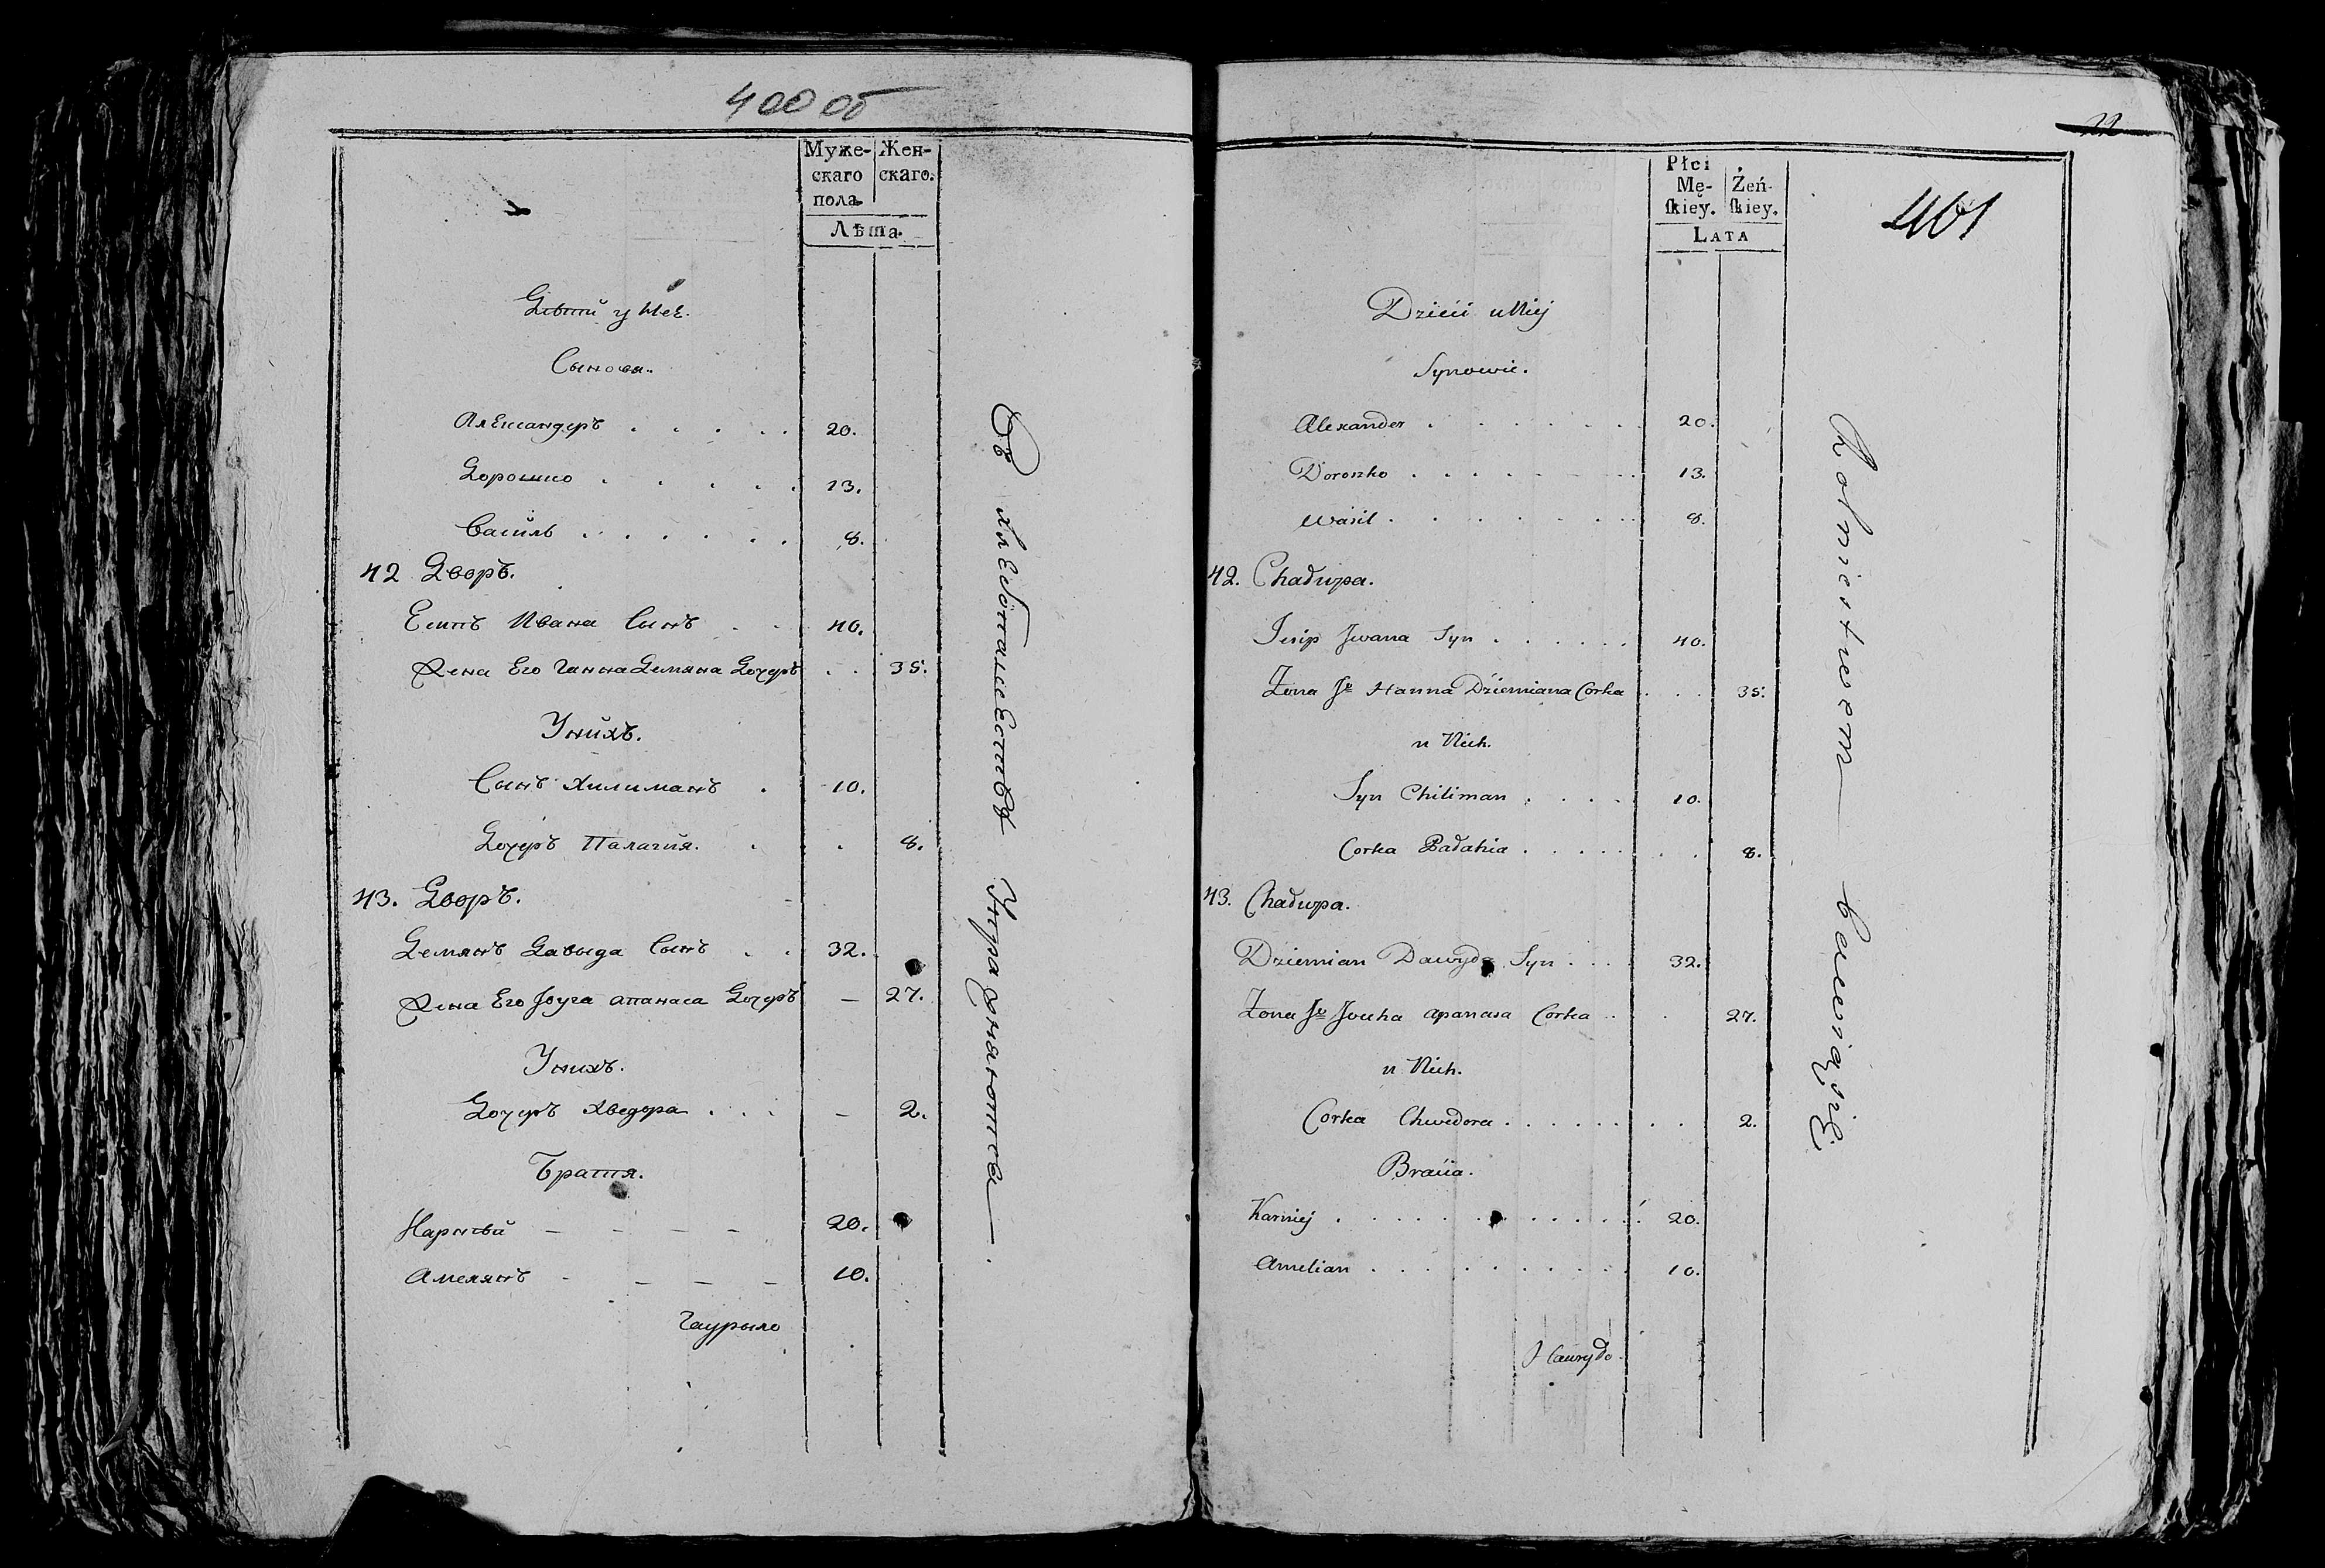 400 об
Муже-
скаго
пола.
Жен-
скаго.
Лѣта.
Дѣти у Неѣ.
Сыновя.
Александеръ . . . . . 20.
Дорошко . . . . . 13.
Василь . . . . . . 8.
42 Дворъ.
Есипъ Ивана Сынъ . . 40.
Жена Его Ганна Демяна Дочеръ . . 35.
У нихъ.
Сынъ Хилиманъ . 10.
Дочеръ Палагия. . . 8.
43. Дворъ.
Демянъ Давыда Сынъ . . 32.
Жена Его Югуа Апанаса Дочеръ — 27.
У нихъ.
Дочеръ Хведора . . . — 2.
Братя.
Карнѣй — — — — 20.
Амелянъ - — — — 10.
Гаурыло
Въ хлебопашествѣ Упражняются — .
22
401
Płci
Mę-
ſkiey.
Żeń-
ſkiey.
LATA
Dzieci u Niej
Synowie.
Alexander . . . . . . . 20.
Doroszko . . . . . . . 13.
Wasil . . . . . . . 8.
42. Chałupa.
Jesip Jwana Syn . . . . . . 40.
Żona Jo Hanna Dziemiana Corka . . . 35.
u Nich.
Syn Chiliman . . . . 10.
Corka Pałahia . . . . . . . 8.
43. Chałupa.
Dziemian Dawyda Syn . . . . 32.
Żona Jo Apanasa Corka . . . 27.
u Nich.
Corka Chwedora . . . . . . . . 2.
Bracia.
Karniej . . . . . . . . . . . 20.
Amelian . . . . . . . . . . 10.
Hawryło.
Rolnictwem — bawią się.